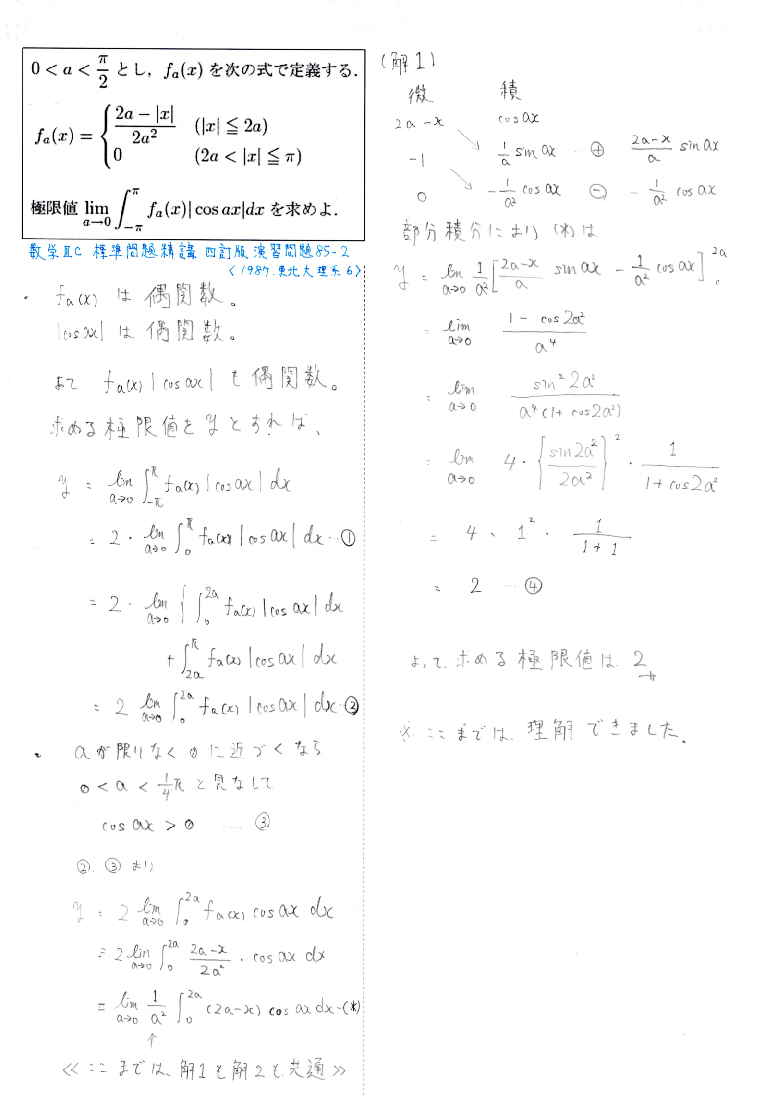 0 < a < π/2 とし, fₐ(x) を次の式で定義する.
fₐ(x) = { (2a − |x|)/(2a²) (|x| ≦ 2a)
0 (2a < |x| ≦ π)
極限値 lim_{a→0} ∫_{−π}^{π} fₐ(x)|cos ax|dx を求めよ.
数学ⅢC 標準問題精講 四訂版 演習問題85-2
〈1987.東北大理系6〉
・ fₐ(x) は 偶関数。
|cos ax| は 偶関数。
よって fₐ(x)|cos ax| も 偶関数。
求める極限値を y とすれば、
y = lim_{a→0} ∫_{−π}^{π} fₐ(x)|cos ax| dx
= 2・lim_{a→0} ∫_0^π fₐ(x)|cos ax| dx …①
= 2・lim_{a→0} { ∫_0^{2a} fₐ(x)|cos ax| dx
+ ∫_{2a}^π fₐ(x)|cos ax| dx
= 2 lim_{a→0} ∫_0^{2a} fₐ(x)|cos ax| dx …②
・ a が限りなく 0 に近づくなら
0 < a < 1/4 π と見なして
cos ax > 0 …… ③
②. ③ より
y = 2 lim_{a→0} ∫_0^{2a} fₐ(x) cos ax dx
= 2 lim_{a→0} ∫_0^{2a} (2a−x)/(2a²) ・ cos ax dx
= lim_{a→0} 1/a² ∫_0^{2a} (2a−x) cos ax dx …(*)
↑
≪ここまでは、解1も解2も、共通≫
(解1)
微 積
2a−x cos ax
−1 1/a sin ax ⊕ (2a−x)/a sin ax
0 −1/a² cos ax ⊖ −1/a² cos ax
部分積分により (*) は
y = lim_{a→0} 1/a² [ (2a−x)/a sin ax − 1/a² cos ax ]_0^{2a}
= lim_{a→0} (1 − cos 2a²)/a⁴
= lim_{a→0} sin² 2a²/(a⁴(1 + cos 2a²))
= lim_{a→0} 4・{ sin 2a²/(2a²) }²・1/(1 + cos 2a²)
= 4・1²・1/(1+1)
= 2 …④
よって、求める極限値は 2
※ ここまでは、理解できました。